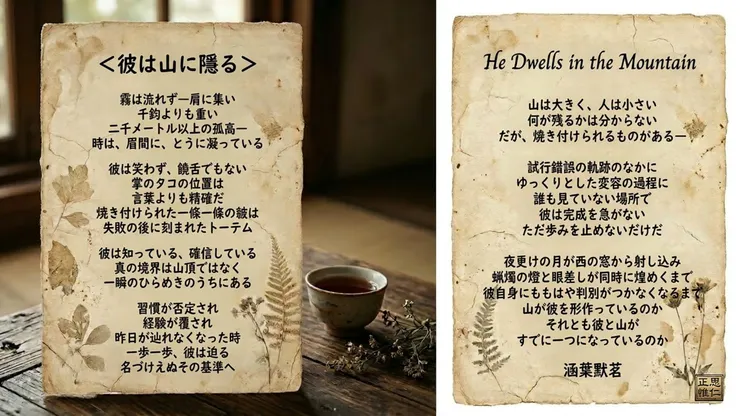 ＜彼は山に隱る＞
霧は流れず—肩に集い
千鈞よりも重い
二千メートル以上の孤高—
時は、眉間に、とうに凝っている
彼は笑わず、饒舌でもない
掌のタコの位置は
言葉よりも精確だ
焼き付けられた一條一條の皺は
失敗の後に刻まれたトーテム
彼は知っている、確信している
真の境界は山頂ではなく
一瞬のひらめきのうちにある
習慣が否定され
経験が覆され
昨日が辿れなくなった時
一歩一歩、彼は迫る
名づけえぬその基準へ
He Dwells in the Mountain
山は大きく、人は小さい
何が残るかは分からない
だが、焼き付けられるものがある—
試行錯誤の軌跡のなかに
ゆっくりとした変容の過程に
誰も見ていない場所で
彼は完成を急がない
ただ歩みを止めないだけだ
夜更けの月が西の窓から射し込み
蝋燭の燈と眼差しが同時に煌めくまで
彼自身にももはや判別がつかなくなるまで
山が彼を形作っているのか
それとも彼と山が
すでに一つになっているのか
涵葉默茗
正思
惟仁